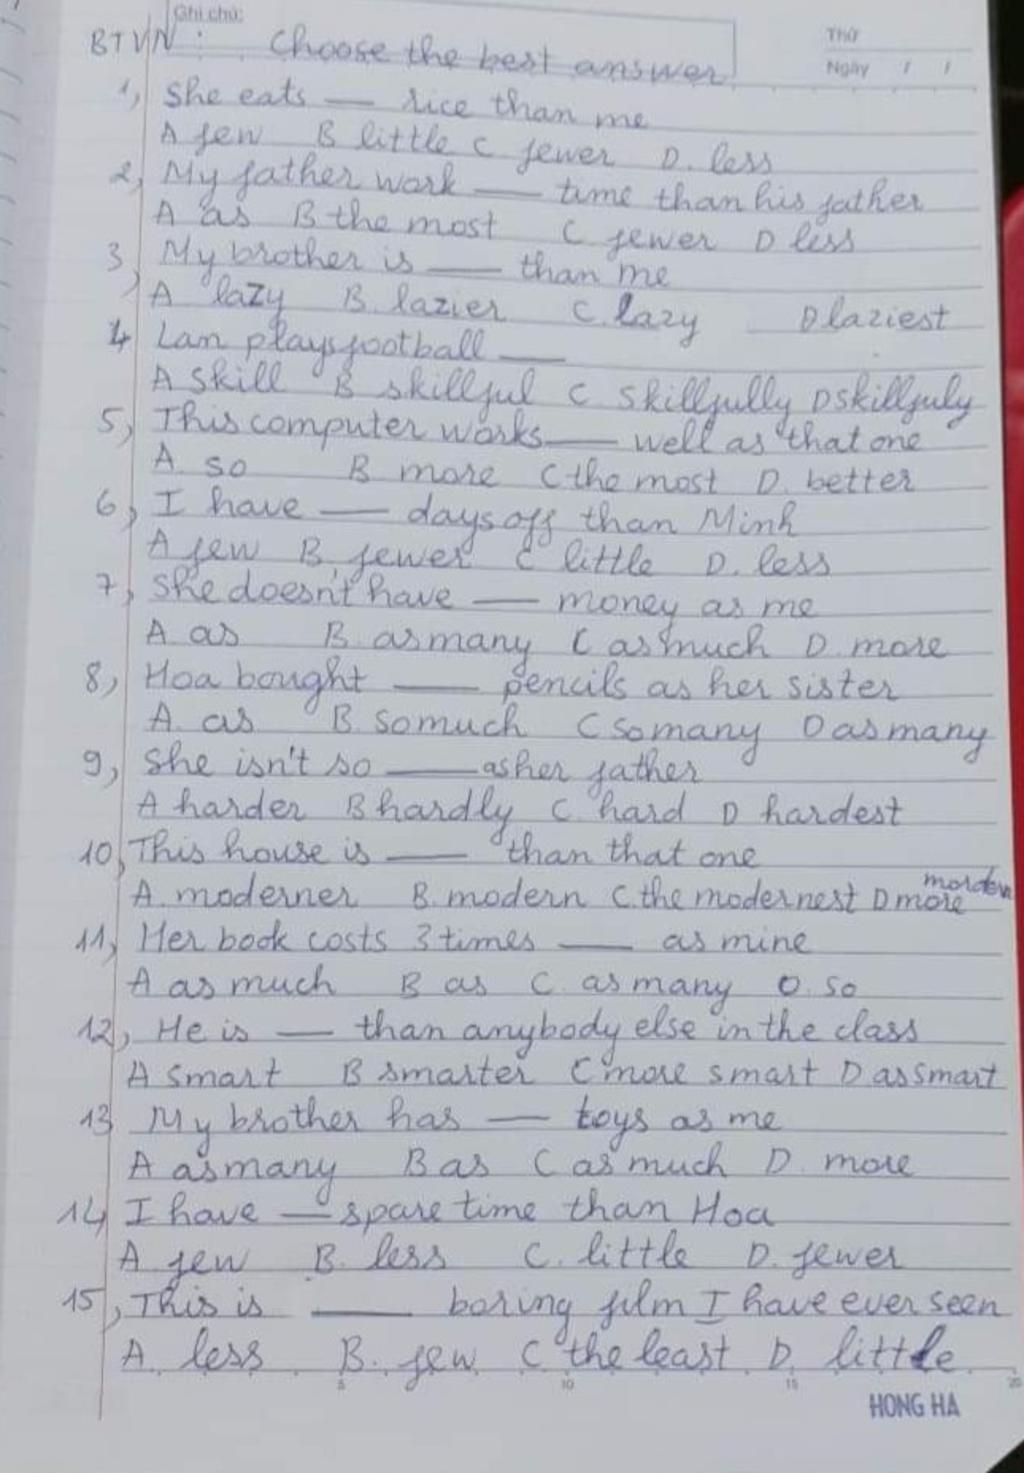 Ghi chú:
BTVN : Choose the best answer
Thứ
Ngày / /
1, She eats — rice than me
A few B little C fewer D. less
2, My father work — time than his father
A as B the most C fewer D less
3, My brother is — than me
A lazy B. lazier C. lazy D laziest
4 Lan plays football —
A skill B skillful C skillfully D skillfuly
5, This computer works — well as that one
A. so B more C the most D. better
6, I have — days off than Minh
A few B. fewer C little D. less
7, She doesn't have — money as me
A as B. as many C as much D. more
8, Hoa bought — pencils as her sister
A. as B. so much C so many D as many
9, She isn't so — as her father
A harder B hardly C. hard D hardest
10, This house is — than that one
A. moderner B. modern C. the modernest D more mordern
11, Her book costs 3 times — as mine
A as much B as C. as many D. so
12, He is — than anybody else in the class
A smart B smarter C more smart D as smart
13 My brother has — toys as me
A as many B as C as much D. more
14, I have — spare time than Hoa
A few B. less C. little D. fewer
15, This is — boring film I have ever seen
A. less B. few C the least D. little
5 10 15 20
HONG HA